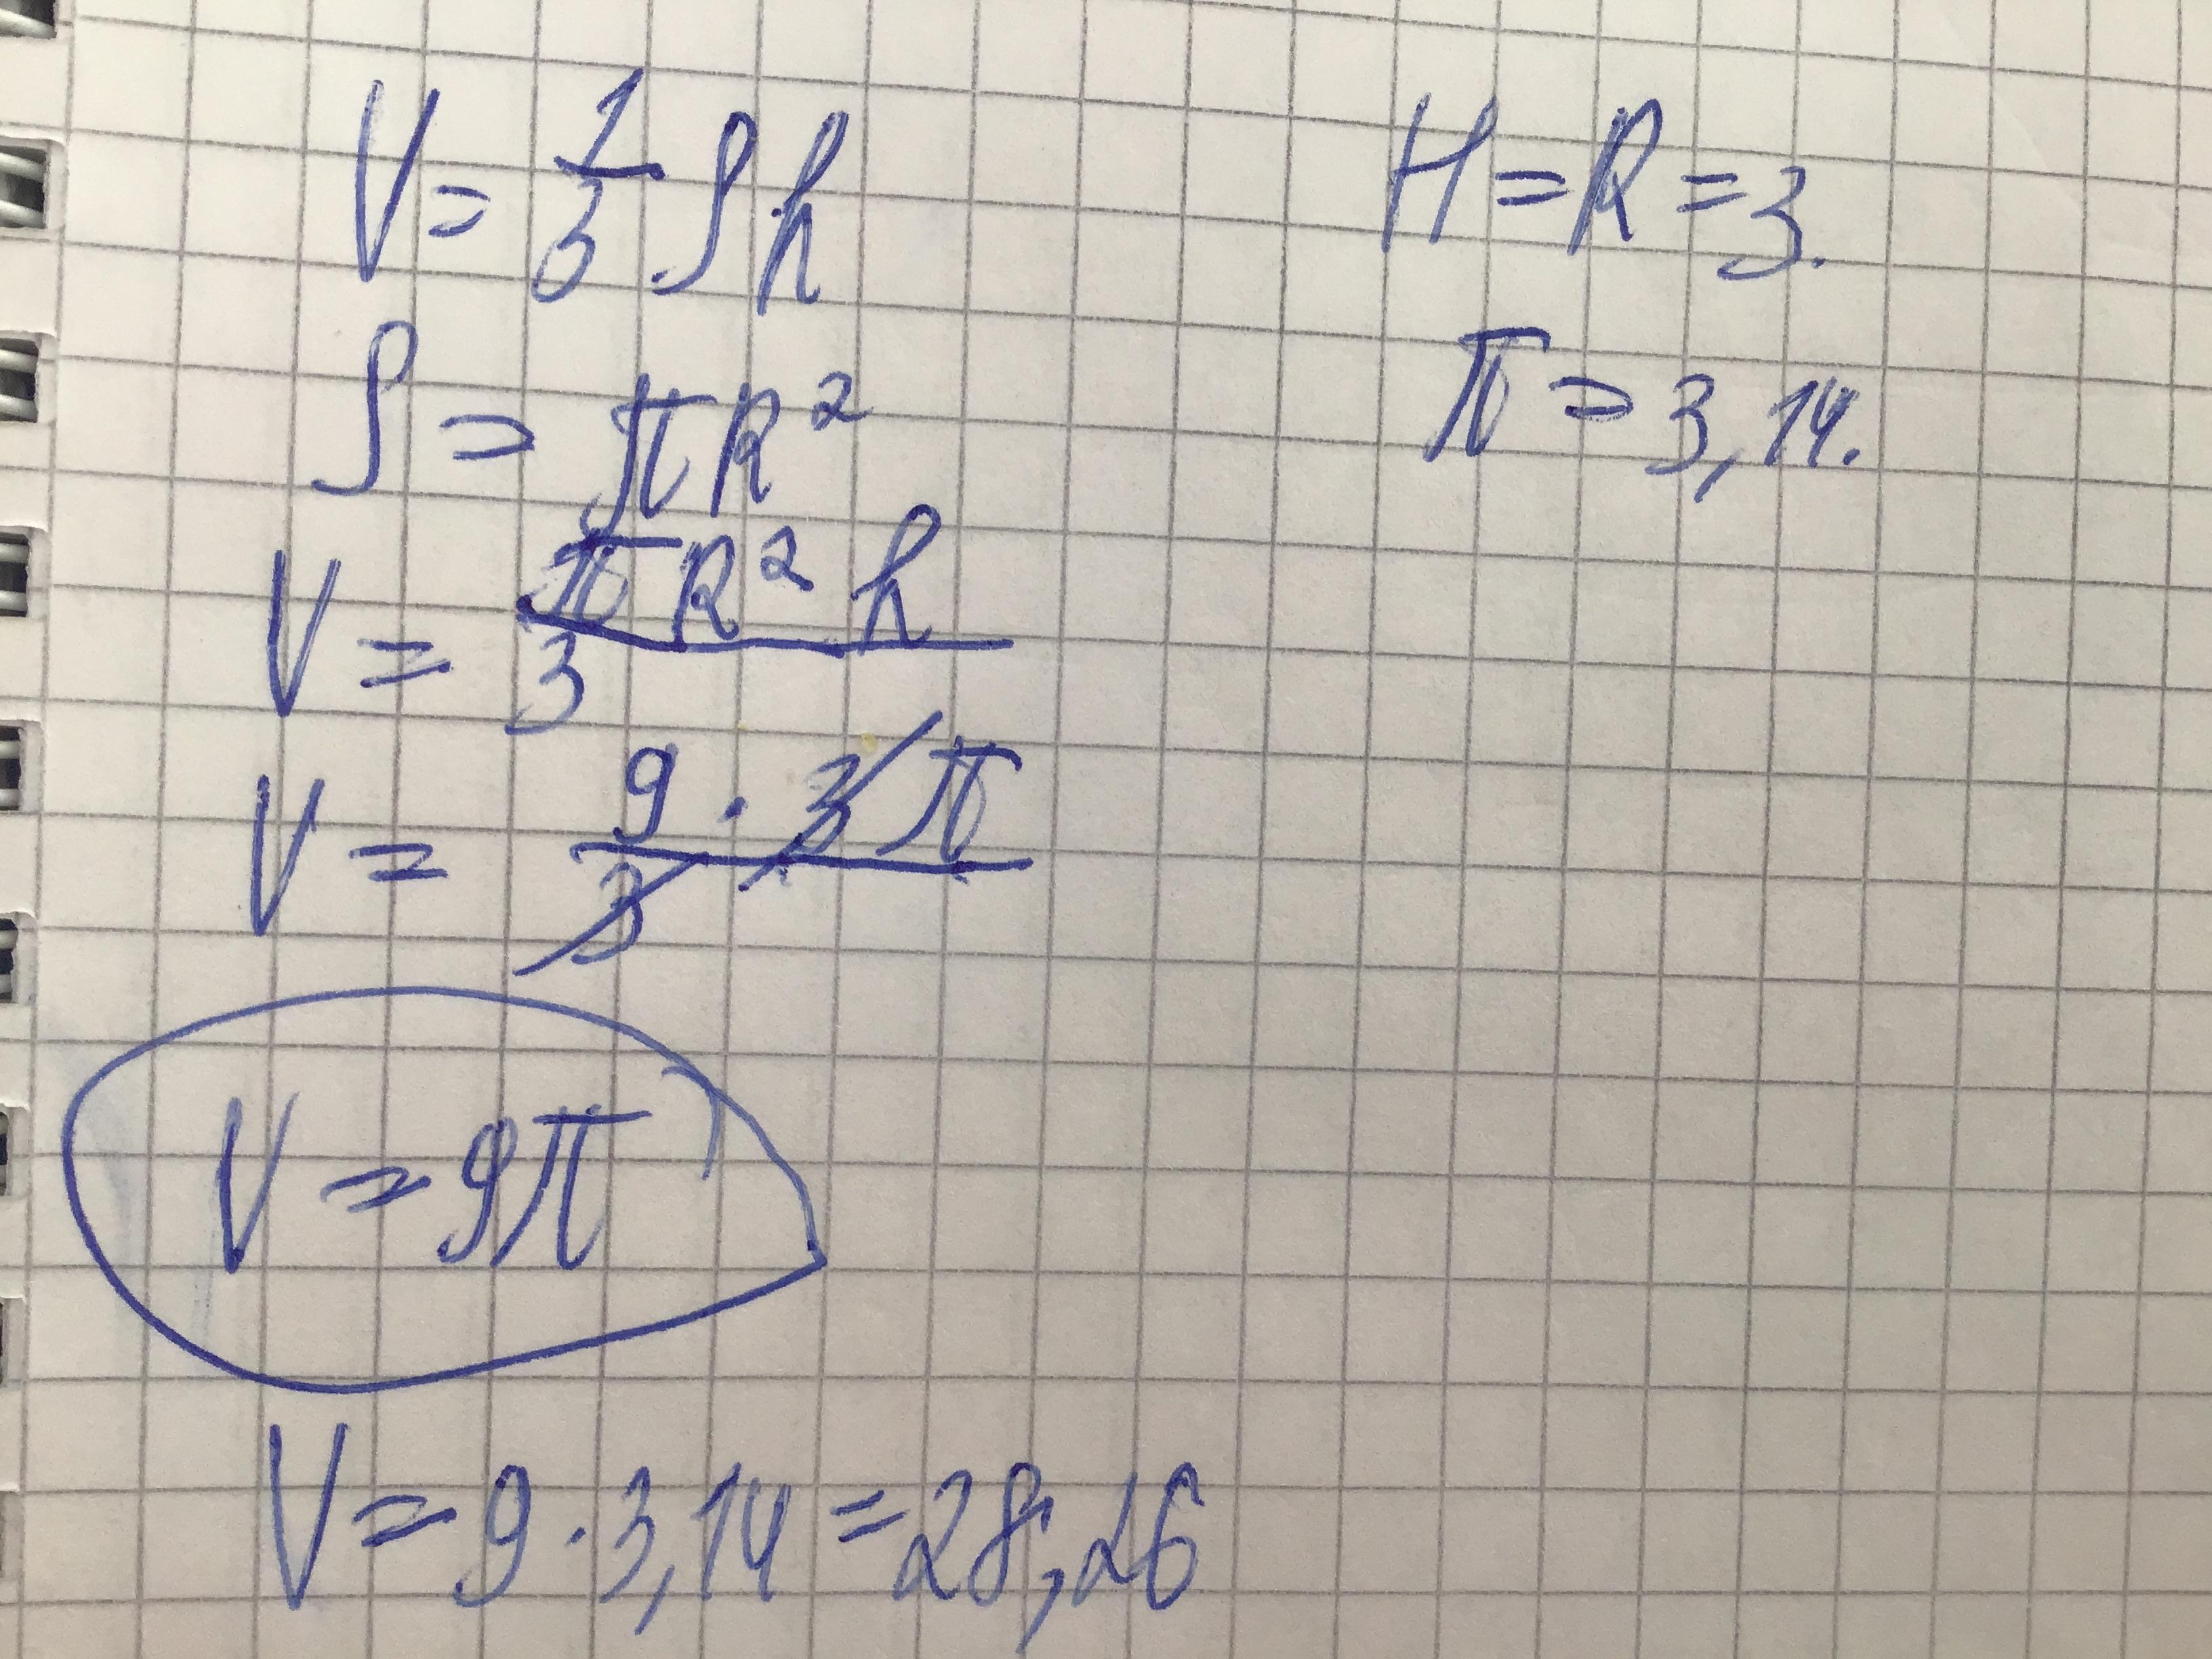 V = 1/3 S h
S = πR²
V = πR²h/3
V = 9 · 3π/3
V = 9π
V = 9 · 3,14 = 28,26
H = R = 3.
π = 3,14.